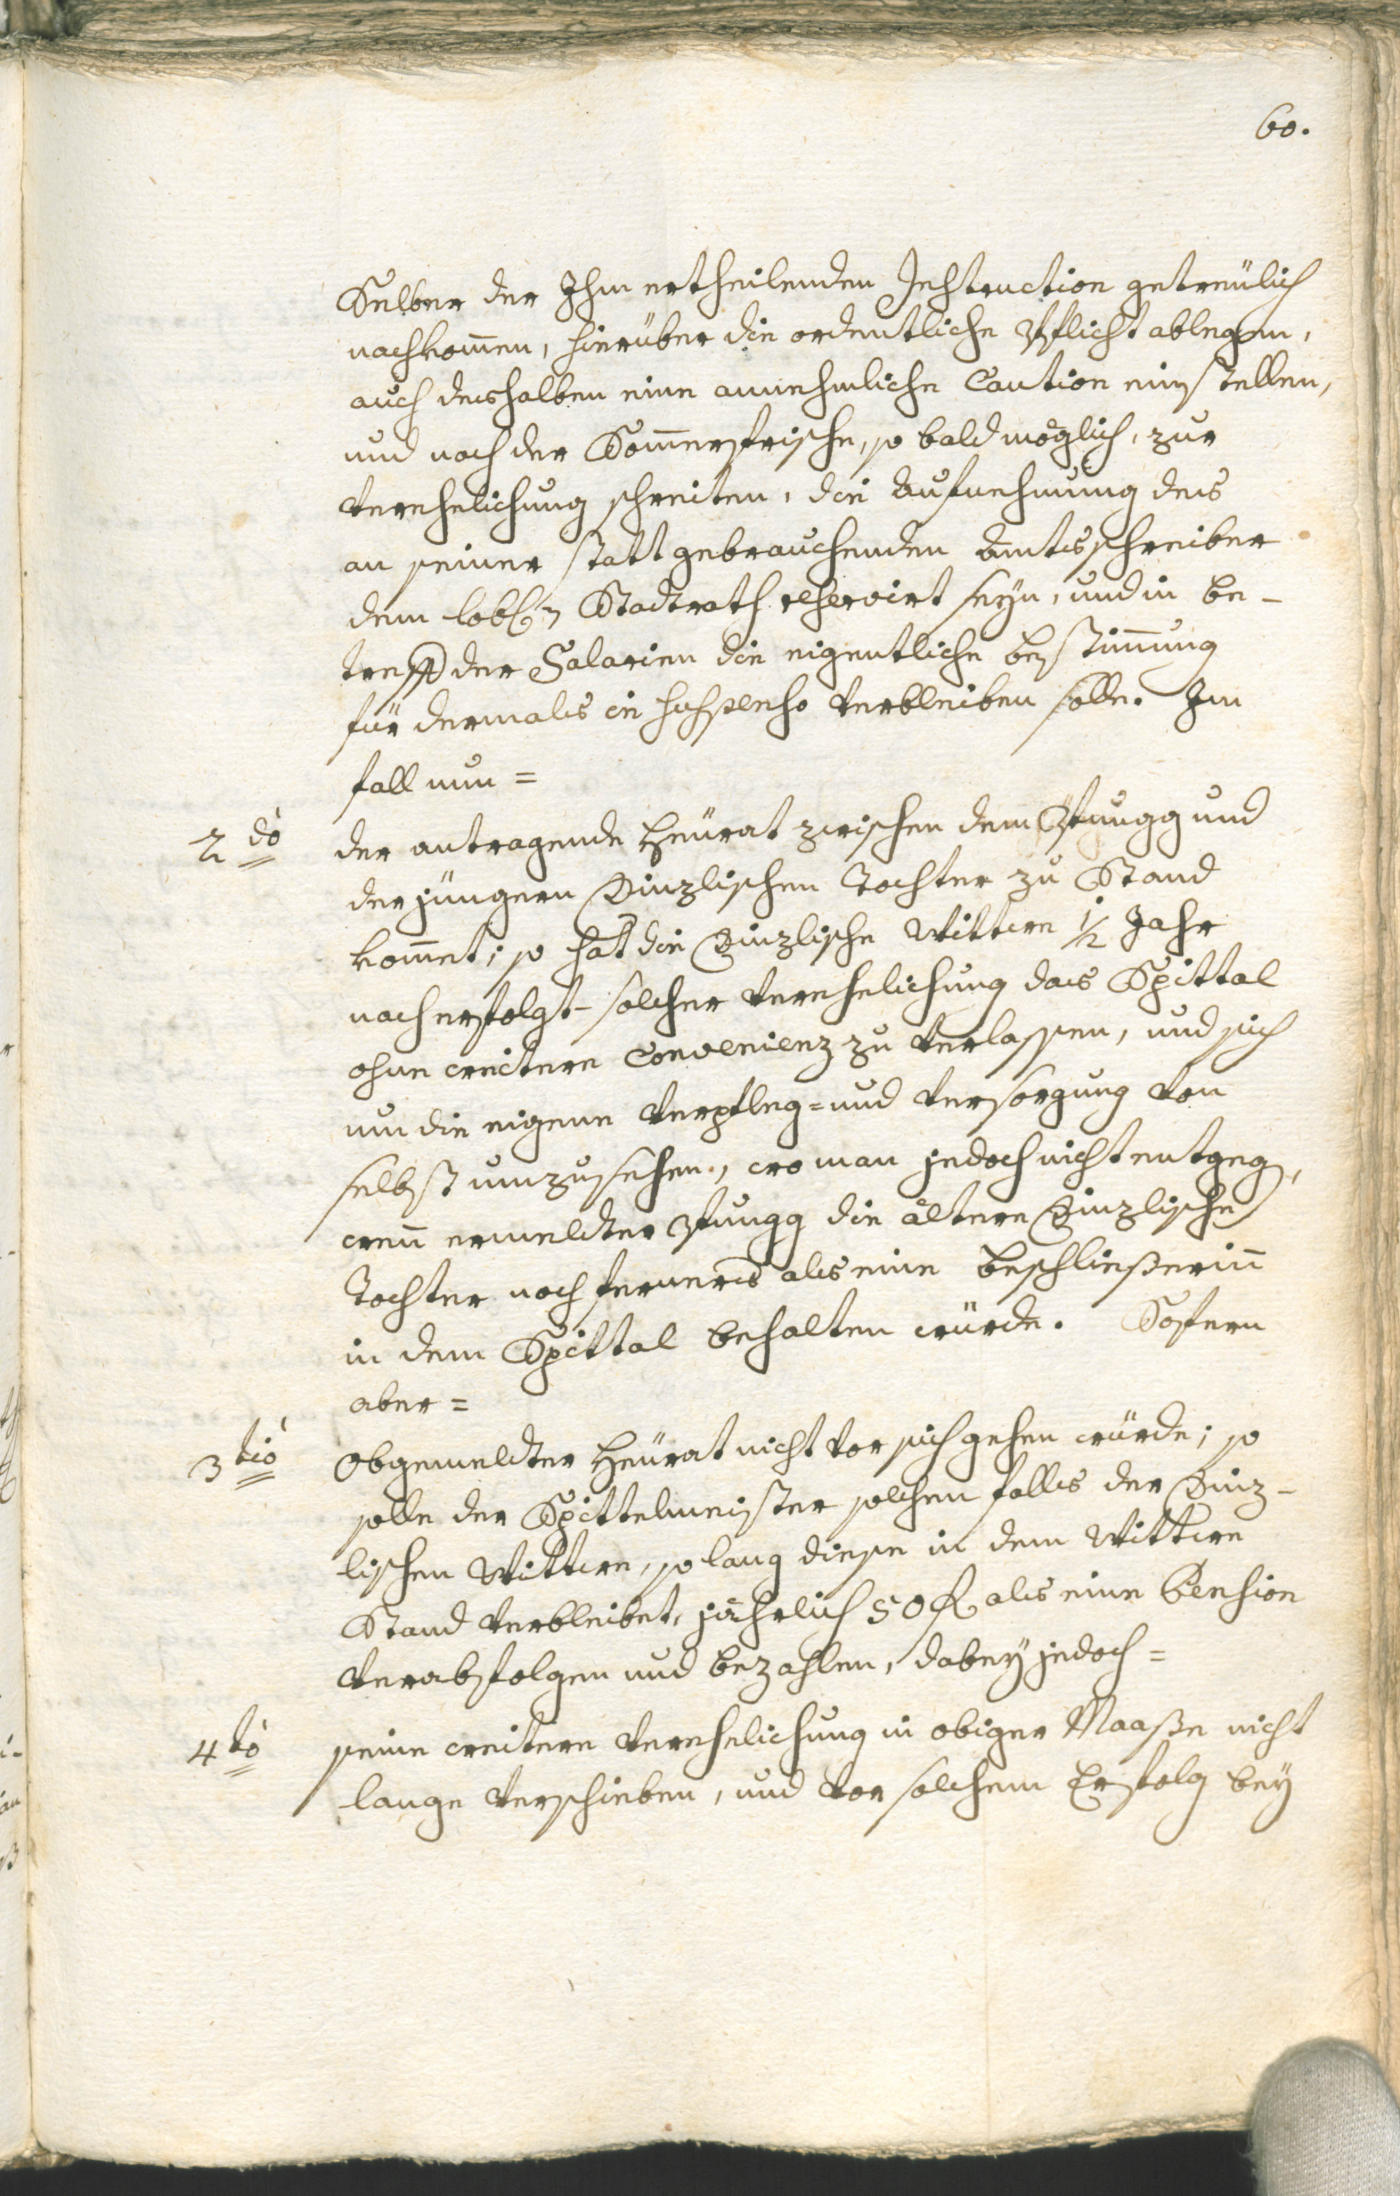 60.
Selber der Ihm ertheilenden Instruction getreülich
nachkom̄en, hierüber die ordentliche Pflicht ablegen,
auch deshalben eine annehmliche Caution einstellen,
und nach der Som̄erfrische, so bald möglich, zur
Verehelichung schreiten, die Aufnehmung des
an seiner statt gebrauchenden Amtsschreiber
dem lobl. Stadtrath reserviert seyn, und in be-
treff der Salarien die eigentliche bestim̄ung
für dermals in suspenso verbleiben solle. Im
fall nun =
2do der antragende Heürat zwischen dem Pfungg und
der jüngern Dinzlischen Tochter zu Stand
kom̄et; so hat die Dinzlische Wittwe 1/2 Jahr
nach erfolgt-solcher Verehelichung das Spittal
ohne weitere Convenienz zu verlassen, und sich
um die eigene Verpfleg= und Versorgung von
selbst umzusehen, wo man jedoch nicht entgeg,
wen̄ ermeldter Pfungg die ältere Dinzlische
Tochter noch ferners als eine beschließerin̄
in dem Spittal behalten würde. Sofern
aber =
3tio Obgemeldter Heürat nicht vor sich gehen würde; so
solle der Spittelmeister solchen falls der Dinz-
lischen Wittwe, so lang diese in dem Wittwe
Stand verbleibet, jährlich 50 f als eine Pension
verabfolgen und bezahlen, dabey jedoch =
4to seine weitere Verehelichung in obiger Maaße nicht
lange verschieben, und vor solchem Erfolg bey